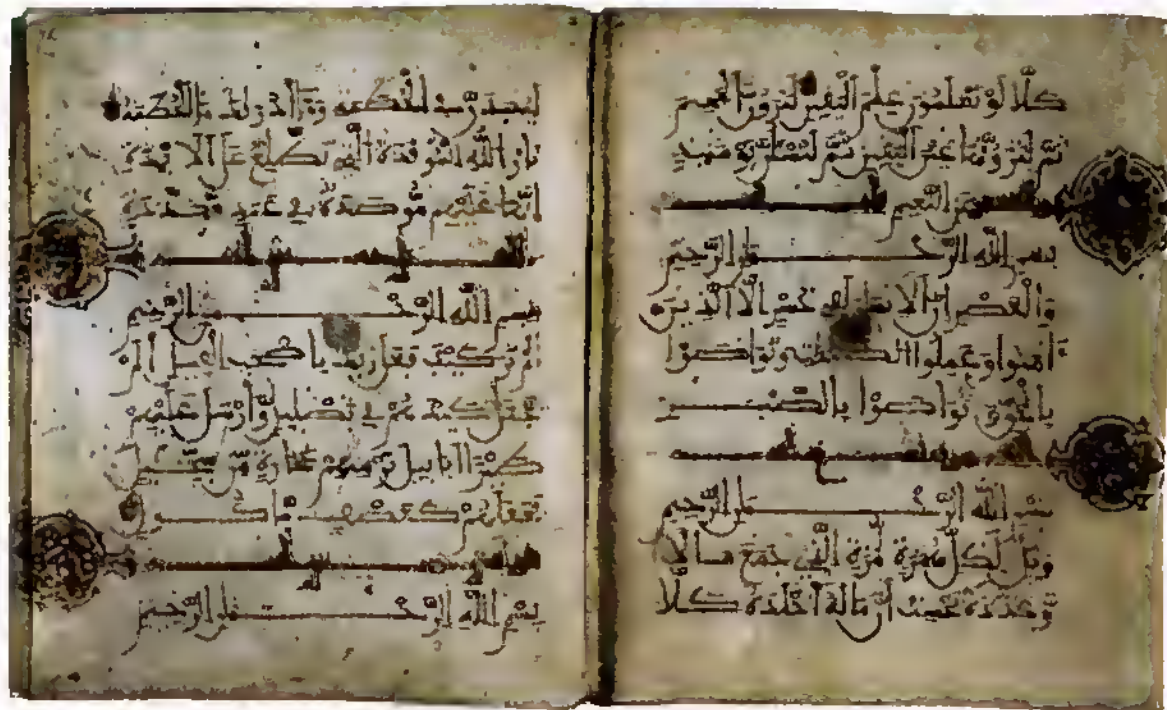 كلا لو تعلمون علم اليقين لترون الجحيم
ثم لترونها عين اليقين ثم لتسئلن يومئذ
عن النعيم
بسم الله الرحمن الرحيم
والعصر ان الانسان لفي خسر الا الذين
آمنوا وعملوا الصلحت وتواصوا
بالحق وتواصوا بالصبر
بسم الله الرحمن الرحيم
ويل لكل همزة لمزة الذي جمع مالا
وعدده يحسب ان ماله اخلده كلا
لينبذن في الحطمة وما ادريك ما الحطمة
نار الله الموقدة التي تطلع على الافئدة
انها عليهم موصدة في عمد ممددة
بسم الله الرحمن الرحيم
الم تر كيف فعل ربك باصحب الفيل الم
يجعل كيدهم في تضليل وارسل عليهم
طيرا ابابيل ترميهم بحجارة من سجيل
فجعلهم كعصف ماكول
بسم الله الرحمن الرحيم